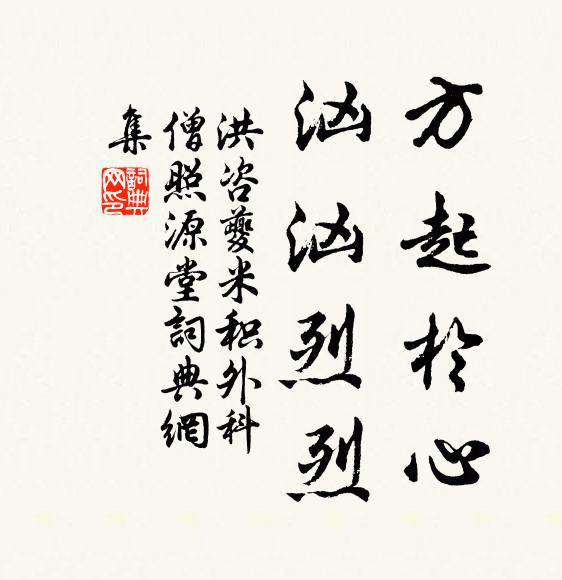 方起於心
汹汹烈烈
洪咨夔米积外科
僧照源堂詞典網
集
詞典網印